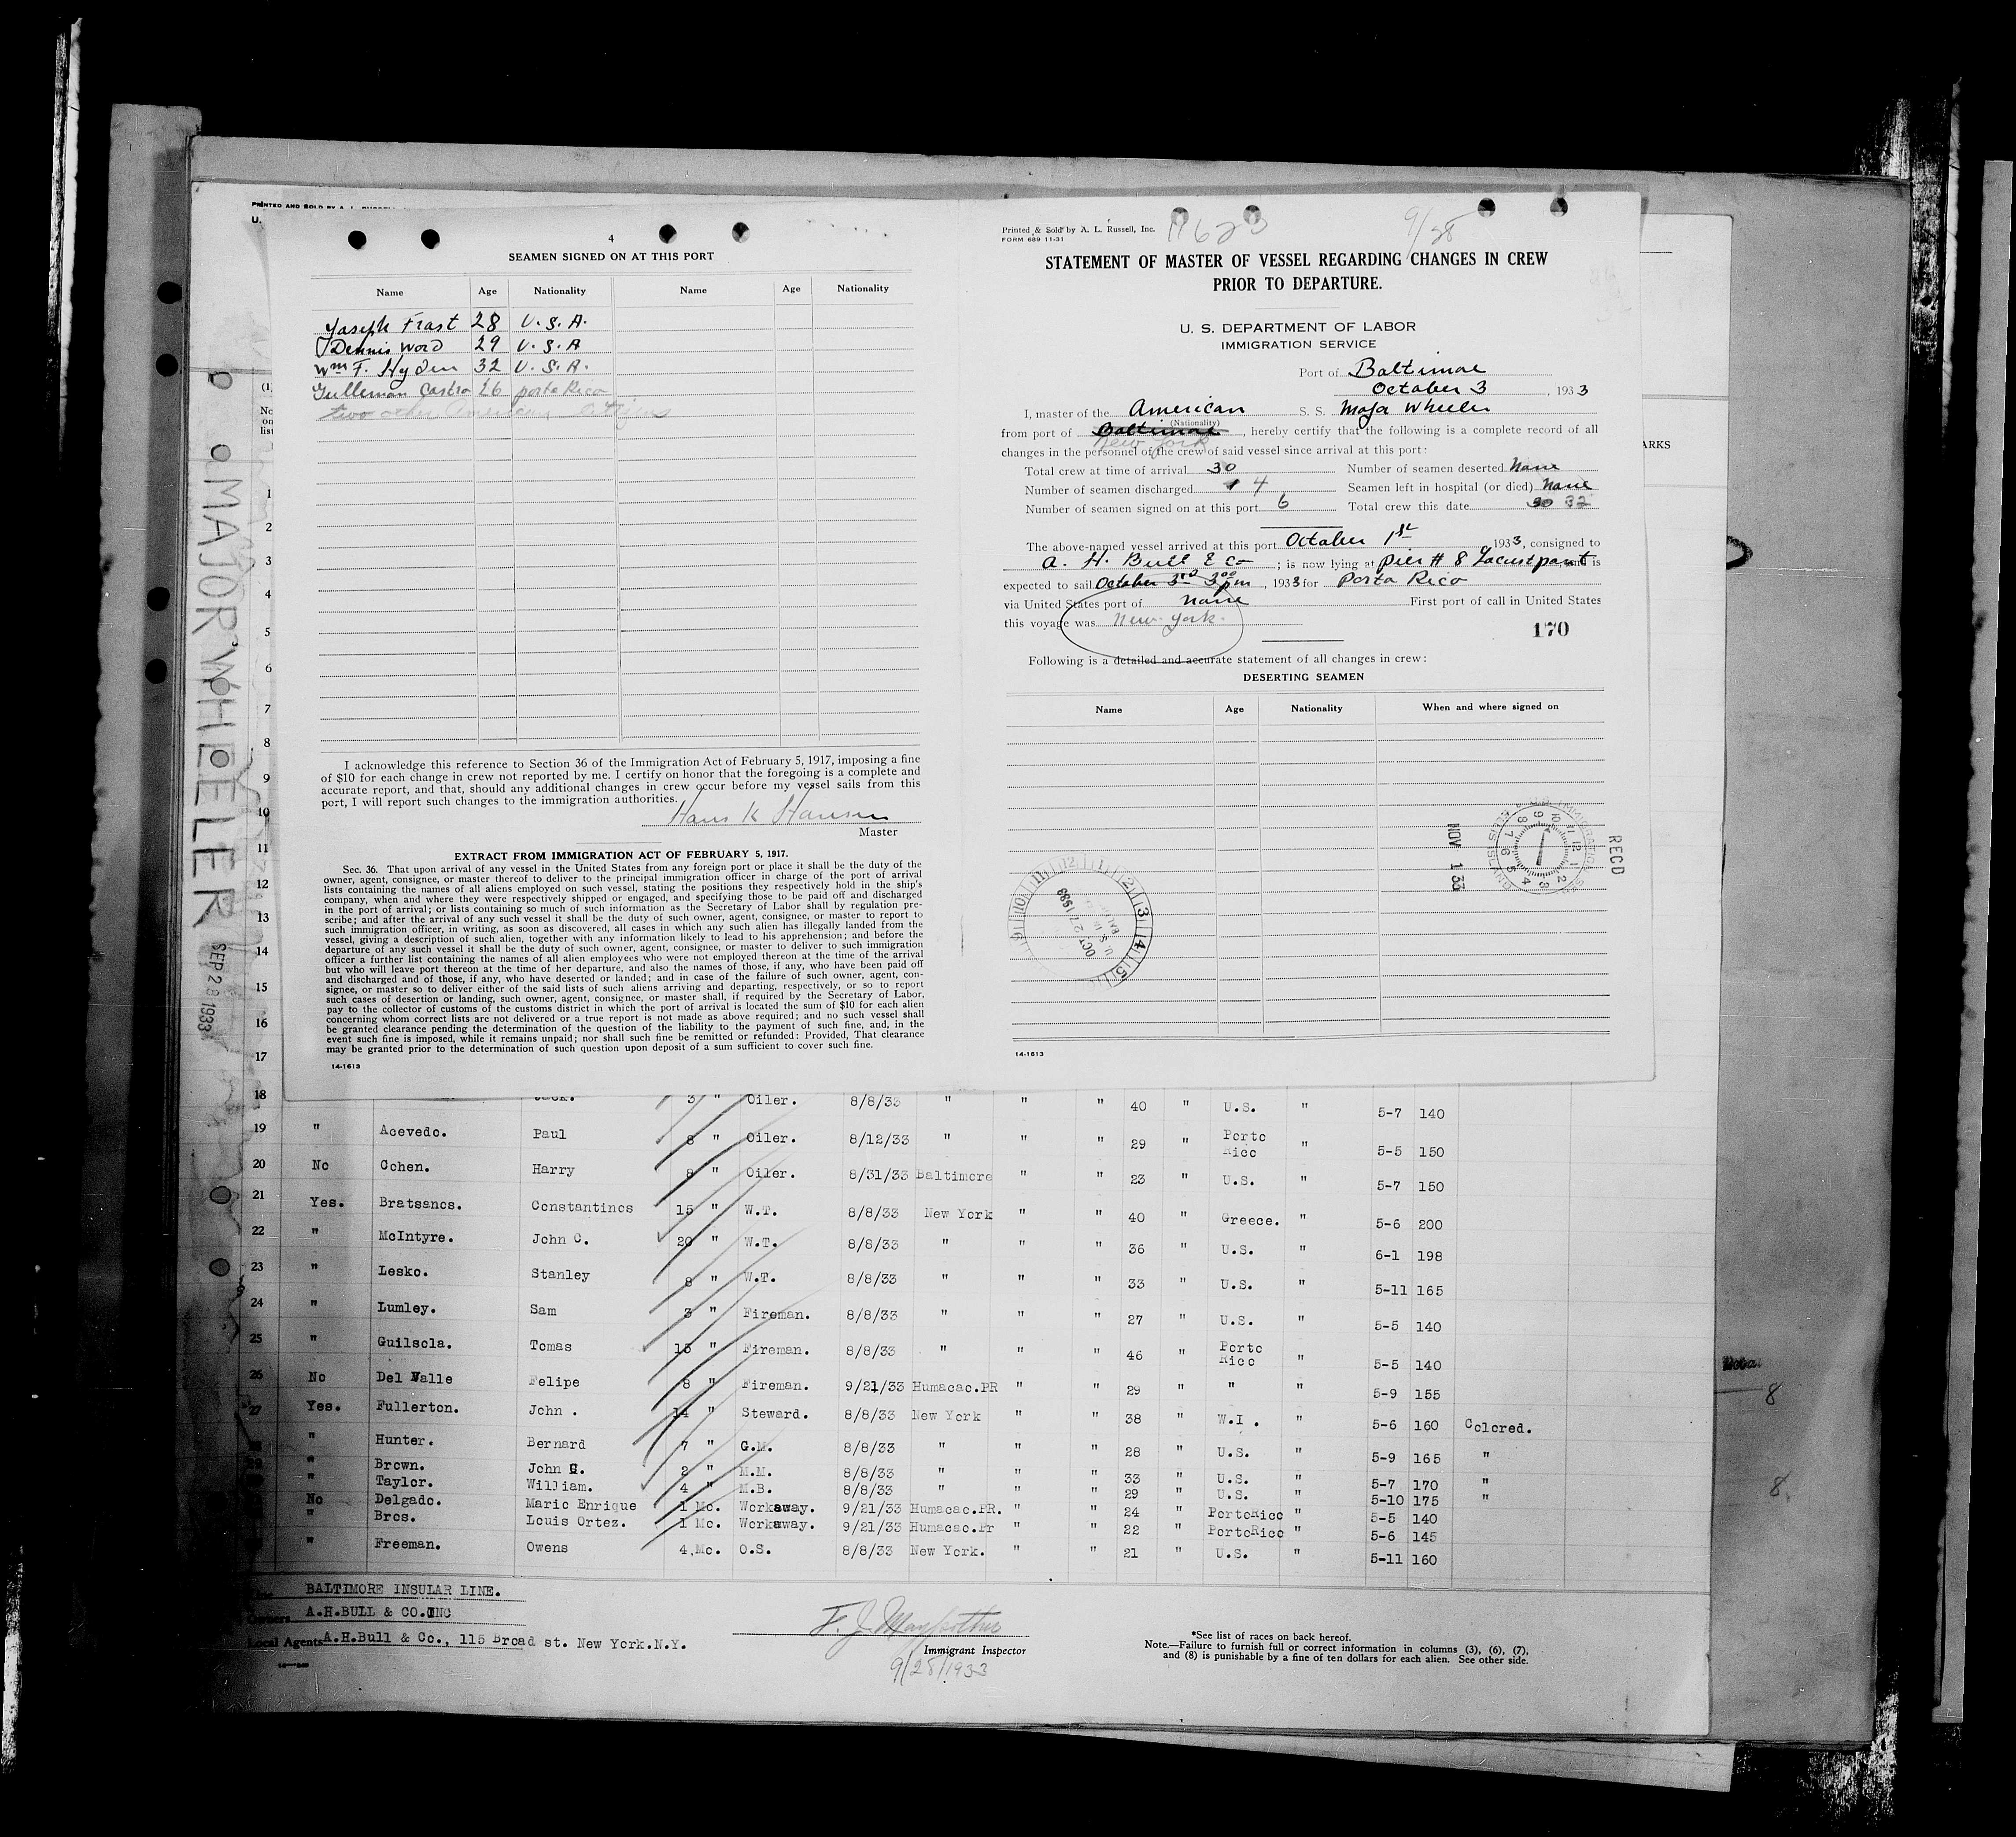 PRINTED AND SOLD BY A. L. RUSSELL
U.
4
SEAMEN SIGNED ON AT THIS PORT
Name Age Nationality Name Age Nationality
Joseph Frast 28 U.S.A.
Dennis Word 29 U.S.A
Wm F. Hyden 32 U.S.A.
Gulleman Castro 26 porto Rico
two other American Citizens
I acknowledge this reference to Section 36 of the Immigration Act of February 5, 1917, imposing a fine
of $10 for each change in crew not reported by me. I certify on honor that the foregoing is a complete and
accurate report, and that, should any additional changes in crew occur before my vessel sails from this
port, I will report such changes to the immigration authorities.
Hans K Hansen
Master
EXTRACT FROM IMMIGRATION ACT OF FEBRUARY 5, 1917.
Sec. 36. That upon arrival of any vessel in the United States from any foreign port or place it shall be the duty of the
owner, agent, consignee, or master thereof to deliver to the principal immigration officer in charge of the port of arrival
lists containing the names of all aliens employed on such vessel, stating the positions they respectively hold in the ship's
company, when and where they were respectively shipped or engaged, and specifying those to be paid off and discharged
in the port of arrival; or lists containing so much of such information as the Secretary of Labor shall by regulation pre-
scribe; and after the arrival of any such vessel it shall be the duty of such owner, agent, consignee, or master to report to
such immigration officer, in writing, as soon as discovered, all cases in which any such alien has illegally landed from the
vessel, giving a description of such alien, together with any information likely to lead to his apprehension; and before the
departure of any such vessel it shall be the duty of such owner, agent, consignee, or master to deliver to such immigration
officer a further list containing the names of all alien employees who were not employed thereon at the time of the arrival
but who will leave port thereon at the time of her departure, and also the names of those, if any, who have been paid off
and discharged and of those, if any, who have deserted or landed; and in case of the failure of such owner, agent, con-
signee, or master so to deliver either of the said lists of such aliens arriving and departing, respectively, or so to report
such cases of desertion or landing, such owner, agent, consignee, or master shall, if required by the Secretary of Labor,
pay to the collector of customs of the customs district in which the port of arrival is located the sum of $10 for each alien
concerning whom correct lists are not delivered or a true report is not made as above required; and no such vessel shall
be granted clearance pending the determination of the question of the liability to the payment of such fine, and, in the
event such fine is imposed, while it remains unpaid; nor shall such fine be remitted or refunded: Provided, That clearance
may be granted prior to the determination of such question upon deposit of a sum sufficient to cover such fine.
14-1613
Printed & Sold by A. L. Russell, Inc.
FORM 689 11-31
9/28
STATEMENT OF MASTER OF VESSEL REGARDING CHANGES IN CREW
PRIOR TO DEPARTURE.
U. S. DEPARTMENT OF LABOR
IMMIGRATION SERVICE
Port of Baltimore
October 3, 1933
I, master of the American S. S. Major Wheeler
(Nationality)
from port of Baltimore, hereby certify that the following is a complete record of all
New York
changes in the personnel of the crew of said vessel since arrival at this port:
Total crew at time of arrival 30 Number of seamen deserted None
Number of seamen discharged 4 Seamen left in hospital (or died) None
Number of seamen signed on at this port 6 Total crew this date 30 32
The above-named vessel arrived at this port October 1st, 1933, consigned to
A. H. Bull & Co; is now lying at Pier # 8 Locust point and is
expected to sail October 3rd 3:00 pm, 1933 for Porto Rico
via United States port of None First port of call in United States
this voyage was New York.
170
Following is a detailed and accurate statement of all changes in crew:
DESERTING SEAMEN
Name Age Nationality When and where signed on
RECD
NOV 1 33
OCT 27 1933
14-1613
ARKS
MAJOR WHEELER
SEP 28 1933
(1)
No
on
list
1
2
3
4
5
6
7
8
9
10
11
12
13
14
15
16
17
18 Jack. 3 " Oiler. 8/8/33 " " " 40 " U.S. " 5-7 140
19 " Acevedo. Paul 8 " Oiler. 8/12/33 " " " 29 " Porto Rico " 5-5 150
20 No Cohen. Harry 8 " Oiler. 8/31/33 Baltimore " " 23 " U.S. " 5-7 150
21 Yes. Bratsanos. Constantinos 15 " W.T. 8/8/33 New York " " 40 " Greece. " 5-6 200
22 " McIntyre. John C. 20 " W.T. 8/8/33 " " " 36 " U.S. " 6-1 198
23 " Lesko. Stanley 8 " W.T. 8/8/33 " " " 33 " U.S. " 5-11 165
24 " Lumley. Sam 3 " Fireman. 8/8/33 " " " 27 " U.S. " 5-5 140
25 " Guilsola. Tomas 15 " Fireman. 8/8/33 " " " 46 " Porto Rico " 5-5 140
26 No Del Valle Felipe 8 " Fireman. 9/21/33 Humacao.PR " " 29 " " " 5-9 155
27 Yes. Fullerton. John . 14 " Steward. 8/8/33 New York " " 38 " W.I . " 5-6 160 Colored.
" Hunter. Bernard 7 " G.M. 8/8/33 " " " 28 " U.S. " 5-9 165 "
" Brown. John G. 2 " M.M. 8/8/33 " " " 33 " U.S. " 5-7 170 "
" Taylor. William. 4 " M.B. 8/8/33 " " " 29 " U.S. " 5-10 175 "
No Delgado. Mario Enrique 1 Mo. Workaway. 9/21/33 Humacao.PR. " " 24 " PortoRico " 5-5 140
" Bros. Louis Ortez. 1 Mo. Workaway. 9/21/33 Humacao.Pr " " 22 " PortoRico " 5-6 145
" Freeman. Owens 4,Mo. O.S. 8/8/33 New York. " " 21 " U.S. " 5-11 160
BALTIMORE INSULAR LINE.
Owners A.H.BULL & CO.INC
Local Agents A.H.Bull & Co., 115 Broad st. New York.N.Y.
Immigrant Inspector
9/28/1933
*See list of races on back hereof.
Note.—Failure to furnish full or correct information in columns (3), (6), (7),
and (8) is punishable by a fine of ten dollars for each alien. See other side.
8
8